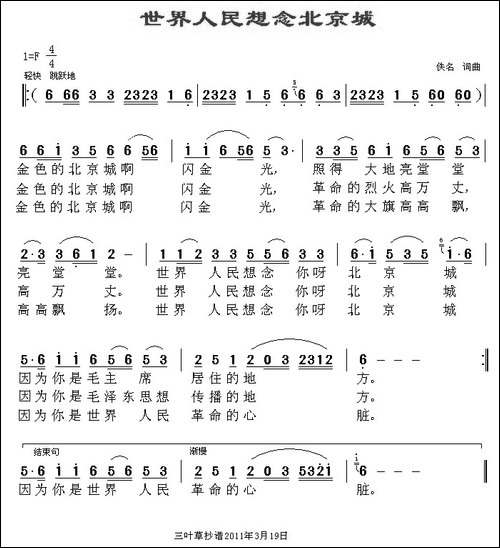 世界人民想念北京城
1=F 4/4
轻快 跳跃地
佚名 词曲
‖:( 6 66 3 3 2323 1 6 | 2323 1 5 6 6 3 | 2323 1 5 60 60 )|
6 6 1 3 5 6 6 56 | i i 6 56 5 3· | 3 3 5 1 6 5 6 5 3
金色的北京城啊 闪金 光, 照得 大地亮堂 堂
金色的北京城啊 闪金 光, 革命的烈火高万 丈,
金色的北京城啊 闪金 光, 革命的大旗高高 飘,
2·3 3 6 1 2 – | i i 6 i 6 5 3 5 | 6·i 5 3 5 i·6
亮 堂 堂。 世界 人民想念 你呀 北 京 城
高 万 丈。 世界 人民想念 你呀 北 京 城
高高飘 扬。 世界 人民想念 你呀 北 京 城
5·6 i i 6 5 6 5 3 | 2 5 1 2 0 3 2312 | 6 – :‖
因为你是毛主 席 居住的地 方。
因为你是毛泽东思想 传播的地 方。
因为你是世界 人民 革命的心 脏。
结束句 渐慢
5·6 i i 6 5 6 5 3 | 2 5 1 2 0 3 5321 | 6 – – :‖
因为你是世界 人民 革命的心 脏。
三叶草抄谱2011年3月19日